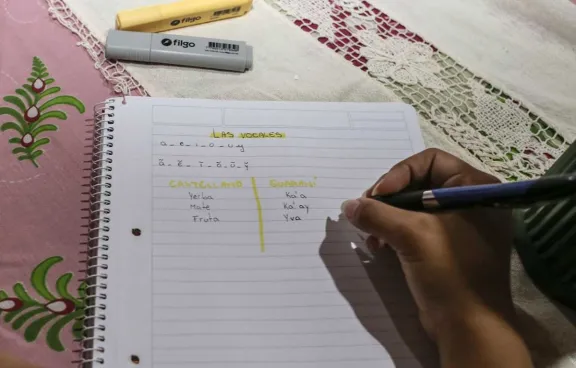 filgo
filgo
LAS VOCALES
a - e - i - o - u - y
ã - ẽ - ĩ - õ - ũ - ỹ
CASTELLANO GUARANÍ
Yerba Ka'a
Mate Ka'ay
Fruta Yva